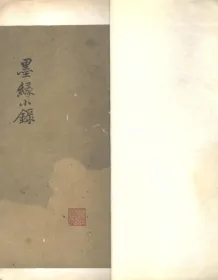 墨緣小錄